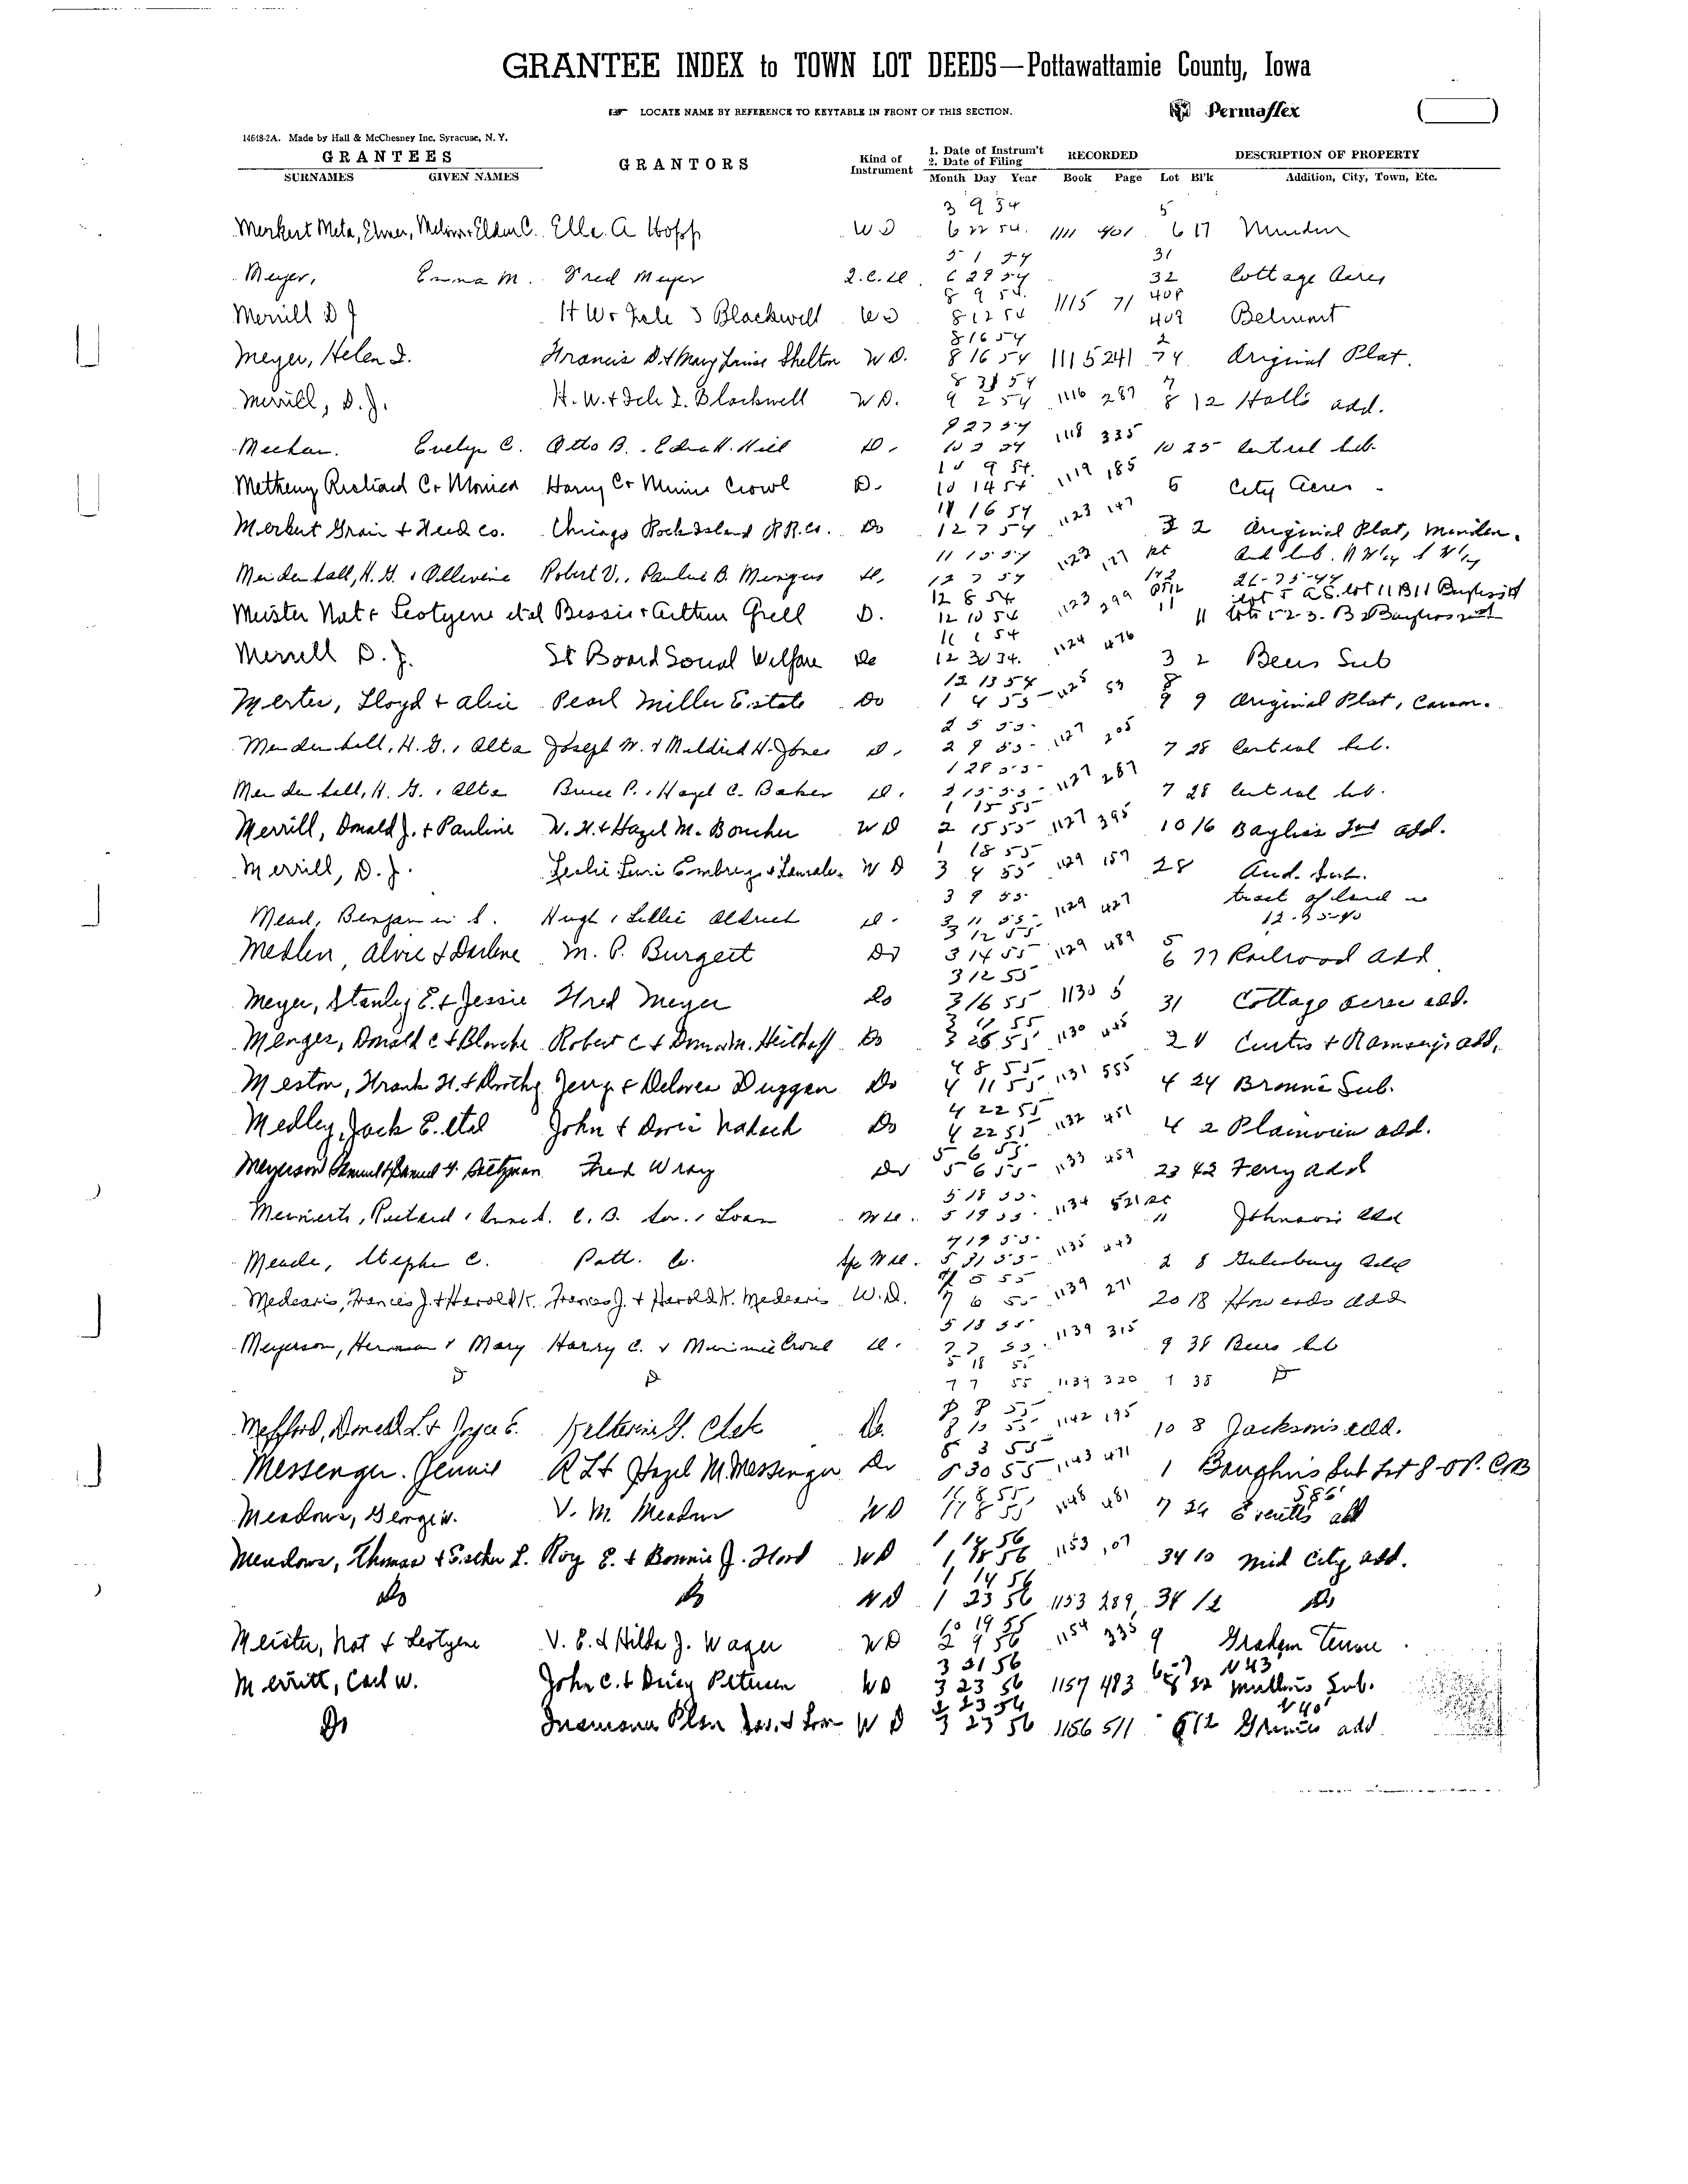 GRANTEE INDEX to TOWN LOT DEEDS—Pottawattamie County, Iowa
LOCATE NAME BY REFERENCE TO KEYTABLE IN FRONT OF THIS SECTION.
Permaflex
14648-2A. Made by Hall & McChesney Inc. Syracuse, N. Y.
GRANTEES GRANTORS Kind of Instrument 1. Date of Instrum't 2. Date of Filing RECORDED DESCRIPTION OF PROPERTY
SURNAMES GIVEN NAMES Month Day Year Book Page Lot Bl'k Addition, City, Town, Etc.
3 9 54 5
Merkert Meta, Elmer, Melvin + Eldon C. Ella A Hopp WD 6 22 54. 1111 401 6 17 Minden
5 1 54 31
Meyer, Emma M. Fred Meyer Q.C.D. 6 29 54 32 Cottage Acres
8 9 54. 408
Merrill D J H W + Zele I Blackwell WD 8 12 54 1115 71 409 Belmont
8 16 54 2
Meyer, Helen I. Francis D. + Mary Louise Shelton WD. 8 16 54 1115 241 74 Original Plat.
8 31 54 7
Merrill, D.J. H. W. + I. Blackwell WD. 9 2 54 1116 287 8 12 Hall's add.
9 27 54
Meehan. Evelyn C. Otto B. Edna H. Hill D. 10 2 54 1118 335 10 25 Central Sub.
10 9 54.
Metheny Richard C + Monica Harry C + Minnie Crowl D. 10 14 54 1119 185 6 City Acres
11 16 54
Merkert Grain + Feed Co. Chicago Rock Island RR. Co. Do 12 7 54 1123 147 3 2 Original Plat, Minden.
11 15 54 pt
Mendenhall, H. G. Robert V., Pauline B. D. 12 7 54 1123 177 26-75-44
12 8 54
Meister Nat + Leotyene etal Bessie + Arthur Grell D. 12 10 54 1123 299 11 11 Lots 1-2-3.
11 1 54
Merrill D. J. St Board Social Welfare Do 12 30 54. 1124 476 3 2 Beers Sub
12 13 54 8
Mertes, Lloyd + Alice Pearl Miller Estate Do 1 4 55 1125 53 9 9 Original Plat, Carson.
2 5 55
Mendenhall, H. G., Alta Joseph W. + Mildred H. Jones D. 2 9 55 1127 205 7 28 Central Sub.
1 28 55
Mendenhall, H. G., Alta Bruce P., Hazel C. Baker D. 2 15 55 1127 287 7 28 Central Sub.
1 15 55
Merrill, Donald J. + Pauline W. H. + Hazel M. Boucher WD 2 15 55 1127 395 10 16 Bayliss 2nd add.
1 18 55
Merrill, D. J. Leslie Embrey WD 3 4 55 1129 157 28 Aud. Sub.
3 9 55 tract of land in
Mead, Benjamin S. Hugh, Lillie Aldrich D. 3 11 55 1129 427
3 12 55 5
Medlen, Alvie + Darlene M. P. Burgett Do 3 14 55 1129 489 6 77 Railroad add
3 12 55
Meyer, Stanley E. + Jessie Fred Meyer Do 3 16 55 1130 5 31 Cottage acres add.
3 11 55
Menges, Donald C + Blanche Robert C + Donna M. Heithoff Do 3 26 55 1130 445 2 Curtis + Ramsey's add.
4 8 55
Meston, Frank H. + Dorothy Jerry + Delores Duggan Do 4 11 55 1131 555 4 24 Browns Sub.
4 22 55
Medley, Jack E. etal John + Doris Do 4 22 55 1132 451 4 2 Plainview add.
5 6 55
Meyerson Samuel + Fred Wray Do 5 6 55 1133 459 23 42 Ferry add
5 18 55
Richard C. B. Sav. & Loan WD. 5 19 55 1134 521 pt 11 Johnson's add
4 19 55
Meade, Stephen C. Pott. Co. Spc WD. 5 31 55 1135 443 2 8 add
5 55
Medearis, Frances J. + Harold K. Frances J. + Harold K. Medearis W.D. 7 6 55 1139 271 20 18 Howards add
5 18 55
Meyerson, Herman + Mary Harry C. + Minnie Crowl D. 7 7 55 1139 315 9 38 Beers Sub
5 18 55
D D 7 7 55 1139 320 9 38 D
8 8 55
Mefford, Donald L. + Joyce E. Katherine G. Do. 8 10 55 1142 195 10 8 Jackson's add.
8 3 55
Messenger. Jennie R L + Hazel M. Messenger Do 8 30 55 1143 471 1 Baughn's Sub Lot 8 OP. CB
8 55
Meadows, George W. V. M. Meadows WD 11 8 55 1148 481 7 24 Everetts add
1 14 56
Meadows, Thomas + Esther L. Roy E. + Bonnie J. Hood WD 1 18 56 1153 107 34 10 Mid City add.
1 14 56
Do Do WD 1 23 56 1153 289 34 12 Do
10 19 55
Meister, Nat + Leotyene V. E. + Hilda J. Wager WD 2 9 56 1154 335 9 Graham Terrace.
3 21 56 N43'
Merritt, Carl W. John C. + Daisy Petersen WD 3 23 56 1157 483 Mullins Sub.
23 56 N40'
Do Insurance Plan Sav. + Loan WD 3 23 56 1156 511 6 12 Grimes add